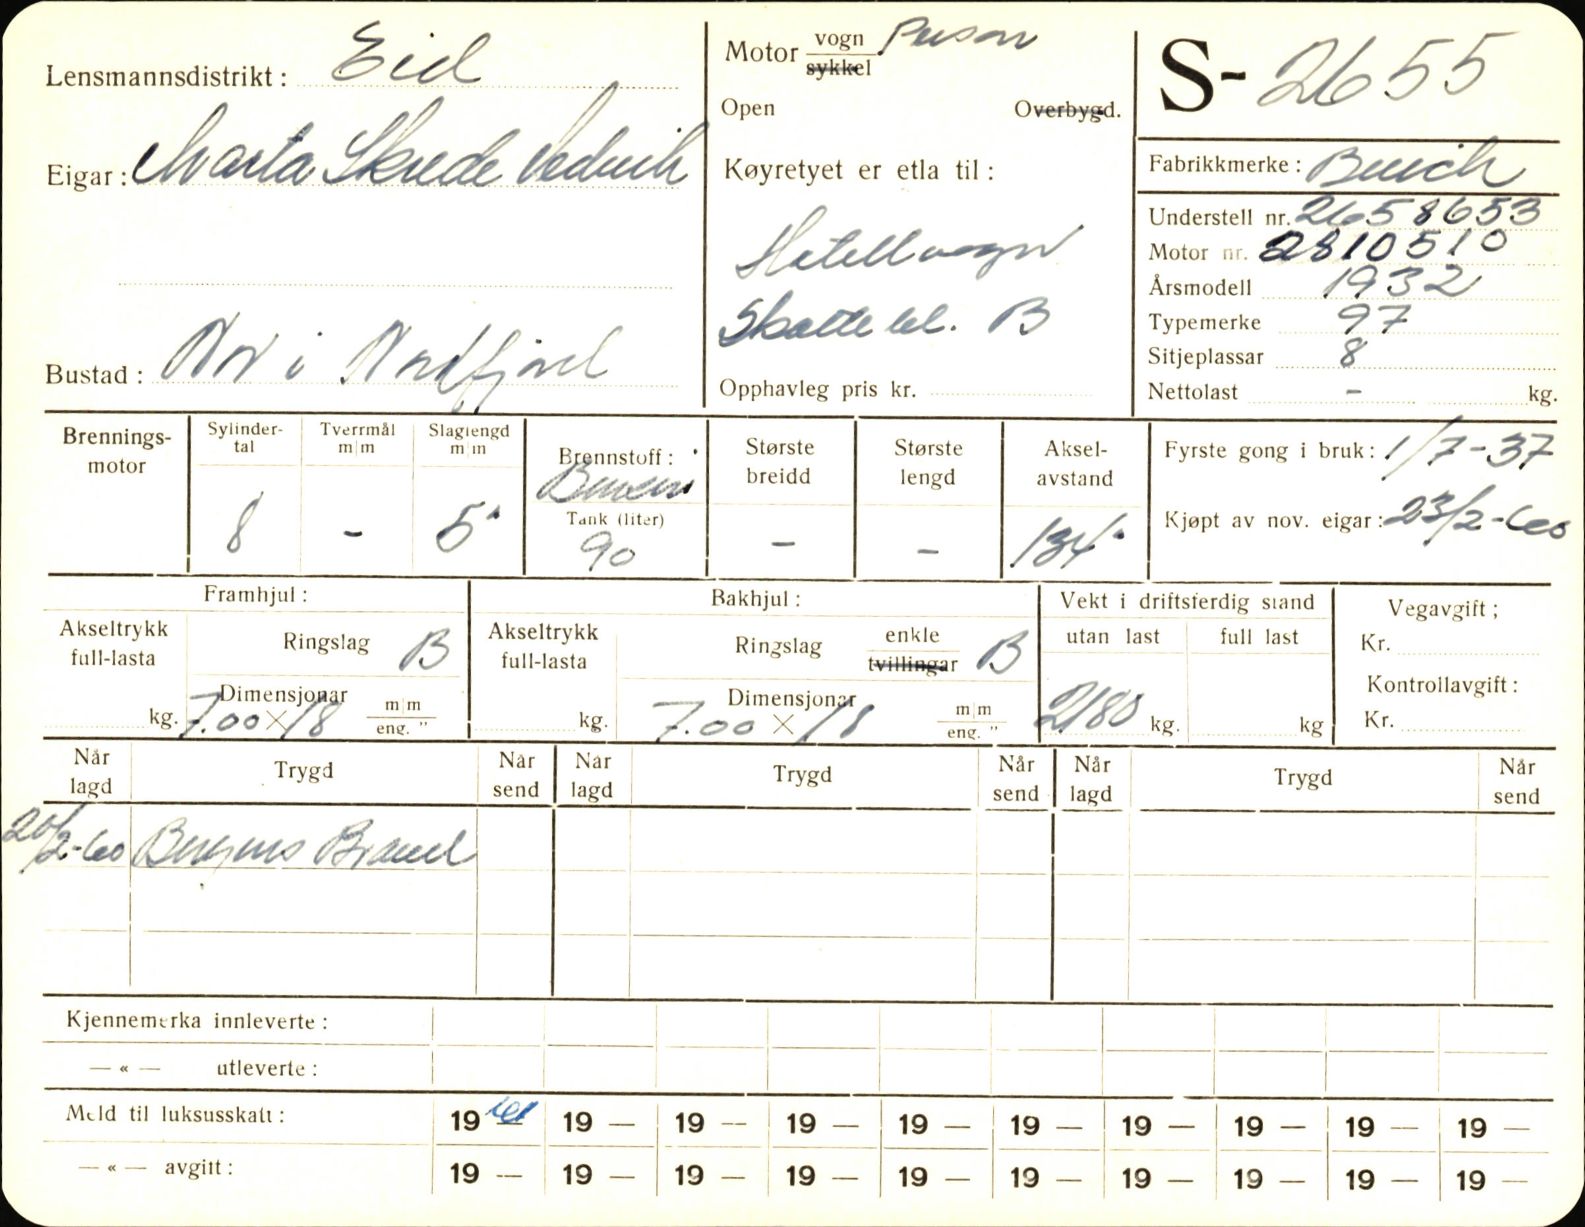 Lensmannsdistrikt: Eid
Eigar: Marta Skrede
Bustad: Nor i Nordfjord
Motor vogn Person
sykkel
Open Overbygd.
Køyretyet er etla til:
Hotellvogn
Skattekl. B
Opphavleg pris kr.
S-2655
Fabrikkmerke: Buick
Understell nr. 2658653
Motor nr. 2810510
Årsmodell 1932
Typemerke 97
Sitjeplassar 8
Nettolast - kg.
Brennings-
motor
Sylinder-
tal
8
Tverrmål
m|m
-
Slaglengd
m|m
5"
Brennstoff:
Bensin
Tank (liter)
90
Største
breidd
-
Største
lengd
-
Aksel-
avstand
134"
Fyrste gong i bruk: 1/7-37
Kjøpt av nov. eigar: 23/2-60
Framhjul:
Akseltrykk
full-lasta
kg.
Ringslag B
Dimensjonar
7.00 × 18 m|m
eng. "
Bakhjul:
Akseltrykk
full-lasta
kg.
Ringslag enkle B
tvillingar
Dimensjonar
7.00 × 18 m|m
eng. "
Vekt i driftsferdig stand
utan last full last
2180 kg. kg
Vegavgift;
Kr.
Kontrollavgift:
Kr.
Når
lagd Trygd Når
send Når
lagd Trygd Når
send Når
lagd Trygd Når
send
20/2-60 Bergens Brand
Kjennemerka innleverte:
— « — utleverte:
Meld til luksusskatt: 19 — 19 — 19 — 19 — 19 — 19 — 19 — 19 — 19 — 19 —
— « — avgift: 19 — 19 — 19 — 19 — 19 — 19 — 19 — 19 — 19 — 19 —